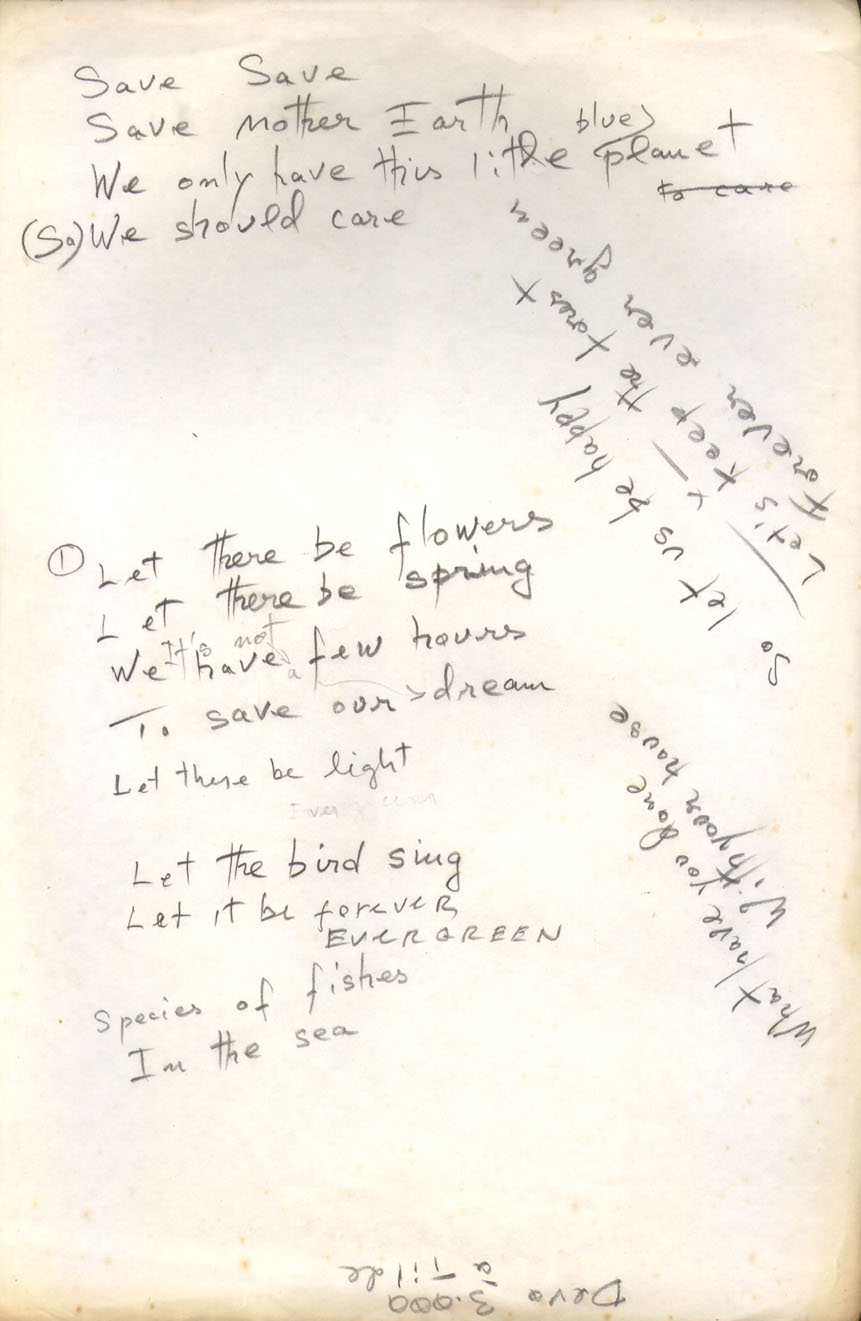 Save Save
Save mother Earth
We only have this little blue planet
to care
(So) We should care
Forever ever green
Let's keep the forest
So let us be happy
① Let there be flowers
Let there be spring
It's not
We have a few hours
To save our dream
Let there be light
Evergreen
Let the bird sing
Let it be forever
EVERGREEN
Species of fishes
In the sea
What have you done
With your house
Devo 3.000
a Tilde